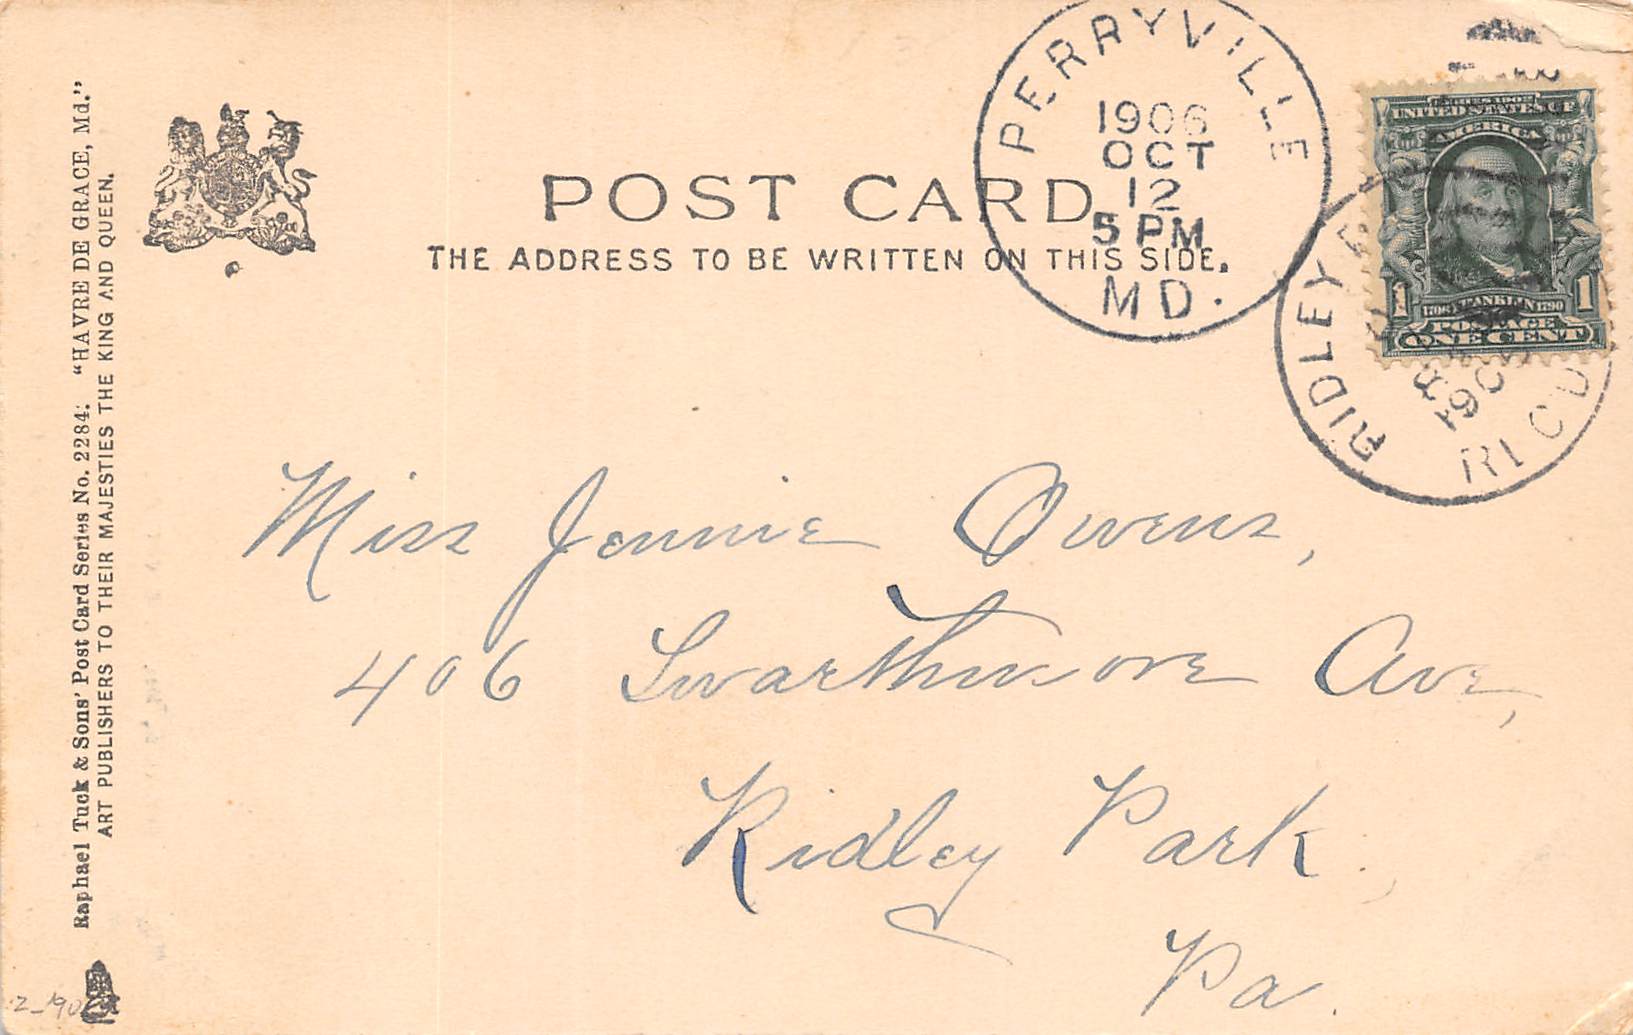 Raphael Tuck & Sons' Post Card Series No. 2284. "HAVRE DE GRACE, Md."
ART PUBLISHERS TO THEIR MAJESTIES THE KING AND QUEEN.
POST CARD
THE ADDRESS TO BE WRITTEN ON THIS SIDE.
PERRYVILLE
1906
OCT
12
5 PM
MD.
UNITED STATES OF
AMERICA
FRANKLIN
1 1
POSTAGE
ONE CENT
RIDLEY
REC'D
Miss Jennie Owens,
406 Swarthmore Ave,
Ridley Park,
Pa.